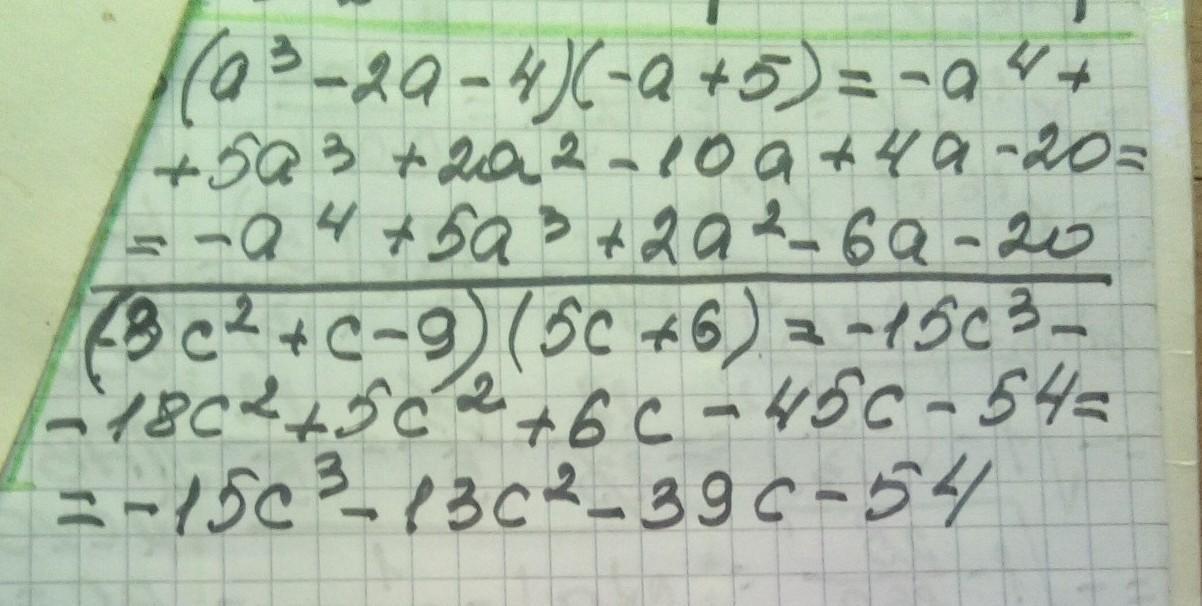 (a³ - 2a - 4)(-a + 5) = -a⁴ +
+ 5a³ + 2a² - 10a + 4a - 20 =
= -a⁴ + 5a³ + 2a² - 6a - 20
(-3c² + c - 9)(5c + 6) = -15c³ -
- 18c² + 5c² + 6c - 45c - 54 =
= -15c³ - 13c² - 39c - 54